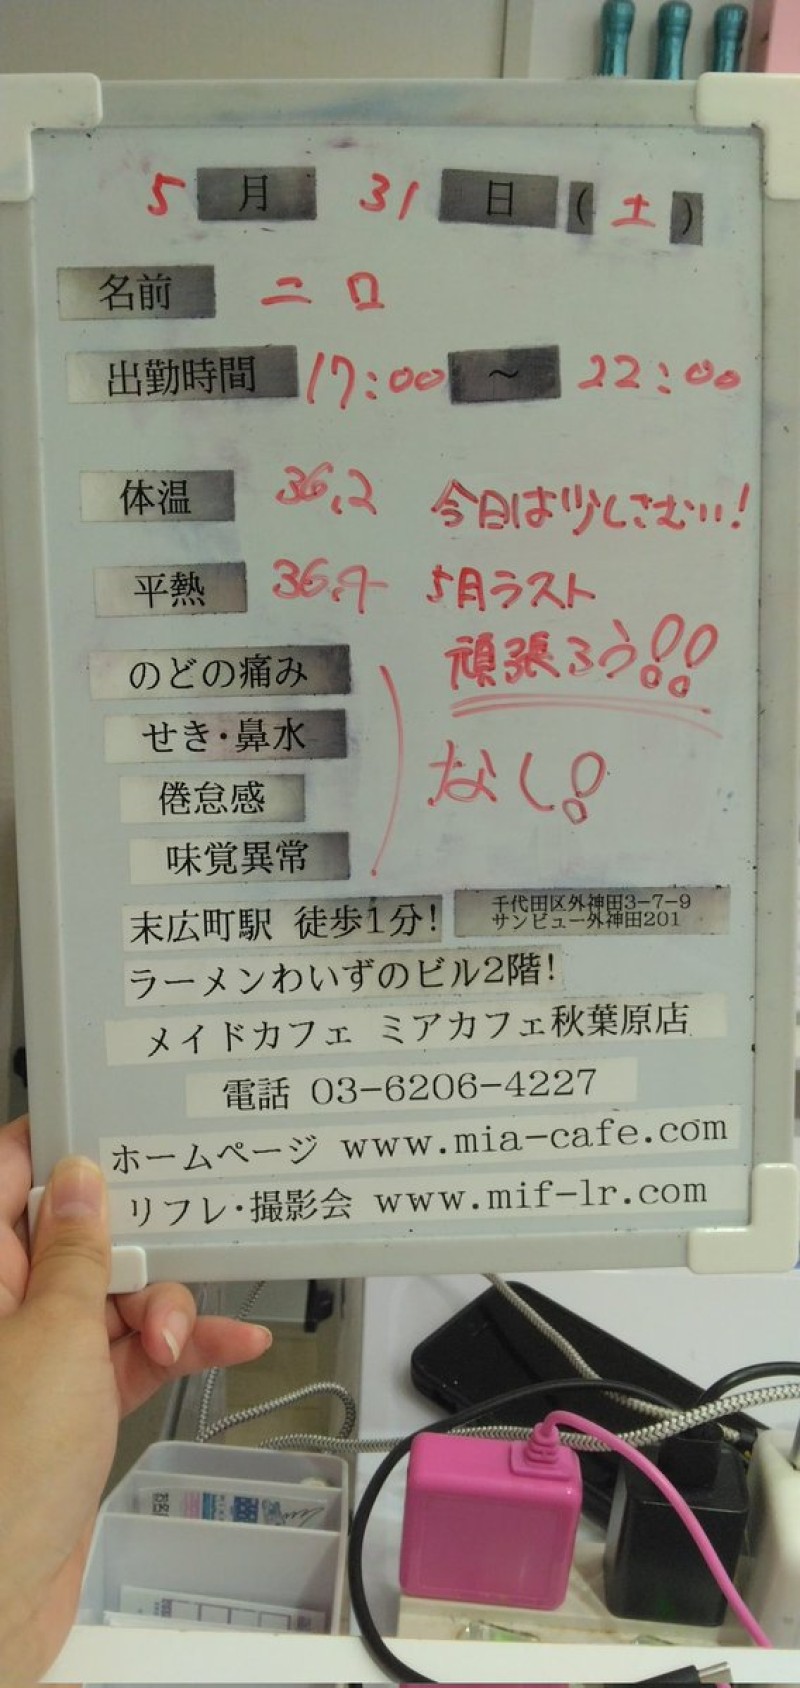 5月 31日(土)
名前 ニロ
出勤時間 17:00 ~ 22:00
体温 36.2 今日は少しさむい!
平熱 36.4 5月ラスト
頑張ろう!!
のどの痛み
せき・鼻水
なし!
倦怠感
味覚異常
末広町駅 徒歩1分!
千代田区外神田3-7-9
サンビュー外神田201
ラーメンわいずのビル2階!
メイドカフェ ミアカフェ秋葉原店
電話 03-6206-4227
ホームページ www.mia-cafe.com
リフレ・撮影会 www.mif-lr.com